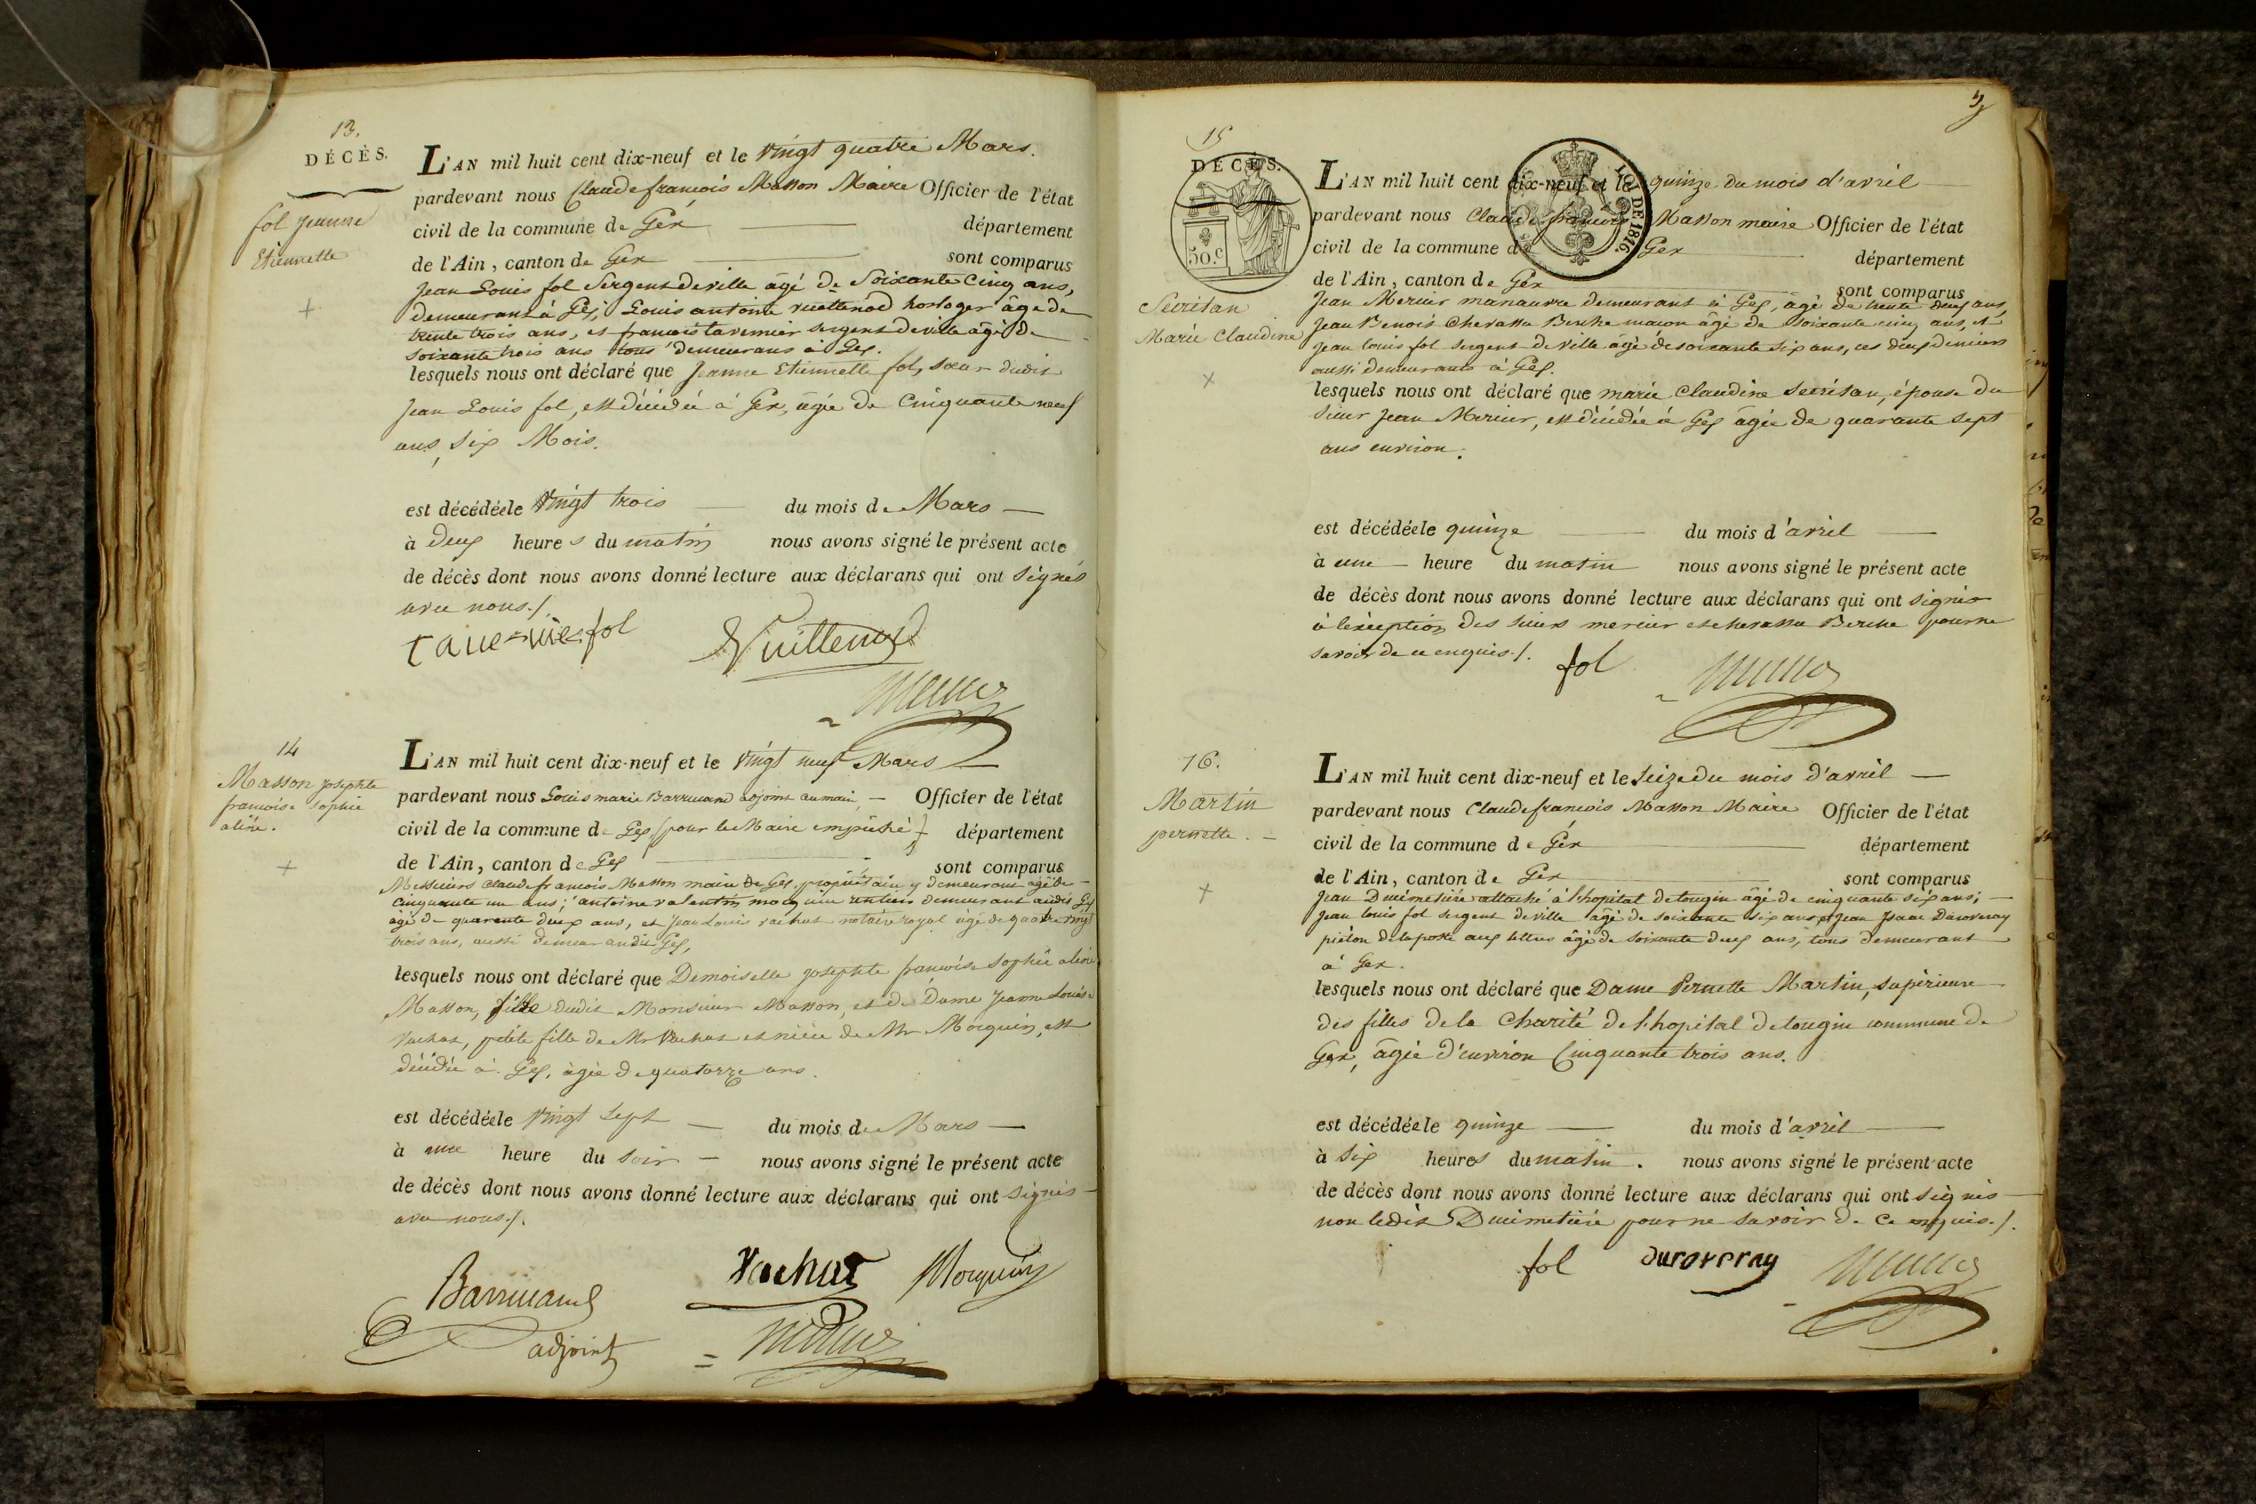 13.
DÉCÈS.
fol jeanne
Etiennette
L'AN mil huit cent dix-neuf et le vingt quatre Mars.
pardevant nous Claude françois Masson Maire Officier de l'état
civil de la commune de Gex département
de l'Ain, canton de Gex sont comparus
Jean Louis fol Sergent de ville âgé de Soixante Cinq ans,
demeurant à Gex, Louis antoine vuillenod horloger âgé de
trente trois ans, et françois tavernier sergent de ville âgé de
soixante trois ans tous demeurans à Gex.
lesquels nous ont déclaré que jeanne Etiennette fol, sœur dudit
Jean Louis fol, est décédée à Gex, âgée de Cinquante neuf
ans, six Mois.
est décédée le vingt trois du mois de Mars
à deux heures du matin nous avons signé le présent acte
de décès dont nous avons donné lecture aux déclarans qui ont signés
avec nous./.
tavernier fol Vuillenod
14
Masson josephte
françoise sophie
aline.
L'AN mil huit cent dix-neuf et le vingt neuf Mars
pardevant nous Louis marie Barruand adjoint au maire Officier de l'état
civil de la commune de Gex (pour le Maire empêché) département
de l'Ain, canton de Gex sont comparus
Messieurs Claude françois Masson maire de Gex, propriétaire y demeurant âgé de
cinquante un ans; antoine valentin morquin rentier demeurant audit Gex
âgé de quarente deux ans, et jean Louis vachat notaire royal âgé de quatre vingt
trois ans, aussi demeurant audit Gex,
lesquels nous ont déclaré que Demoiselle josephte françoise sophie aline
Masson, fille dudit Monsieur Masson, et de Dame jeanne Louise
Vachat, petite fille de Mr Vachat et nièce de Mr Morquin, est
décédée à Gex, âgée de quatorze ans.
est décédée le vingt sept du mois de Mars
à une heure du soir nous avons signé le présent acte
de décès dont nous avons donné lecture aux déclarans qui ont signés
avec nous./.
Barruand Vachat Morquin
adjoint
15
DÉCÈS.
50.c
LOI DE 1816.
Secrétan
Marie Claudine
L'AN mil huit cent dix-neuf et le quinze du mois d'avril
pardevant nous Claude françois Masson maire Officier de l'état
civil de la commune de Gex département
de l'Ain, canton de Gex sont comparus
Jean Mercier manœuvre demeurant à Gex, âgé de trente deux ans,
Jean Benoit Chevassu Berche maçon âgé de soixante cinq ans, et
jean louis fol sergent de ville âgé de soixante six ans, ces deux derniers
aussi demeurants à Gex.
lesquels nous ont déclaré que marie Claudine secrétan, épouse du
sieur jean Mercier, est décédée à Gex âgée de quarante sept
ans environ.
est décédée le quinze du mois d'avril
à une heure du matin nous avons signé le présent acte
de décès dont nous avons donné lecture aux déclarans qui ont signés
à l'exception des sieurs mercier et chevassu Berche pour ne
savoir de ce enquis./.
fol
16.
Martin
pernette.
L'AN mil huit cent dix-neuf et le Seize du mois d'avril
pardevant nous Claude françois Masson Maire Officier de l'état
civil de la commune de Gex département
de l'Ain, canton de Gex sont comparus
Jean Ducimetière attaché à l'hopital de tougin âgé de cinquante six ans;
jean louis fol sergent de ville âgé de soixante six ans, et jean Isaac Duroveray
piéton de la poste aux lettres âgé de soixante deux ans, tous demeurant
à Gex.
lesquels nous ont déclaré que Dame Pernette Martin, supérieure
des filles de la Charité de l'hopital de tougin commune de
Gex, âgée d'environ Cinquante trois ans.
est décédée le quinze du mois d'avril
à six heures du matin. nous avons signé le présent acte
de décès dont nous avons donné lecture aux déclarans qui ont signés
non ledit Ducimetière pour ne savoir de ce enquis./.
fol duroveray